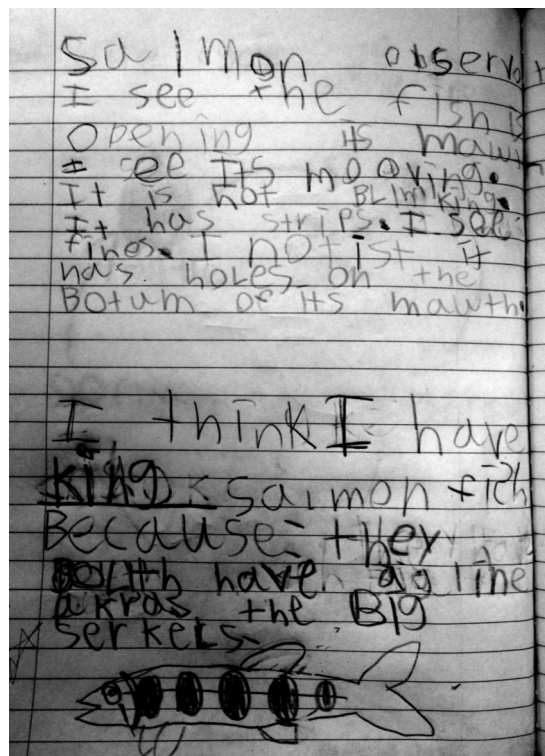 Salmon observat
I see the fish is
Opening its mawth
I see Its mooving.
It is not BLimking.
It has strips. I see
fines. I notist it
has holes on the
Botum of its mawth.
I think I have
king salmon fich
Because: they
Bouth have a line
akras the Big
serkels.